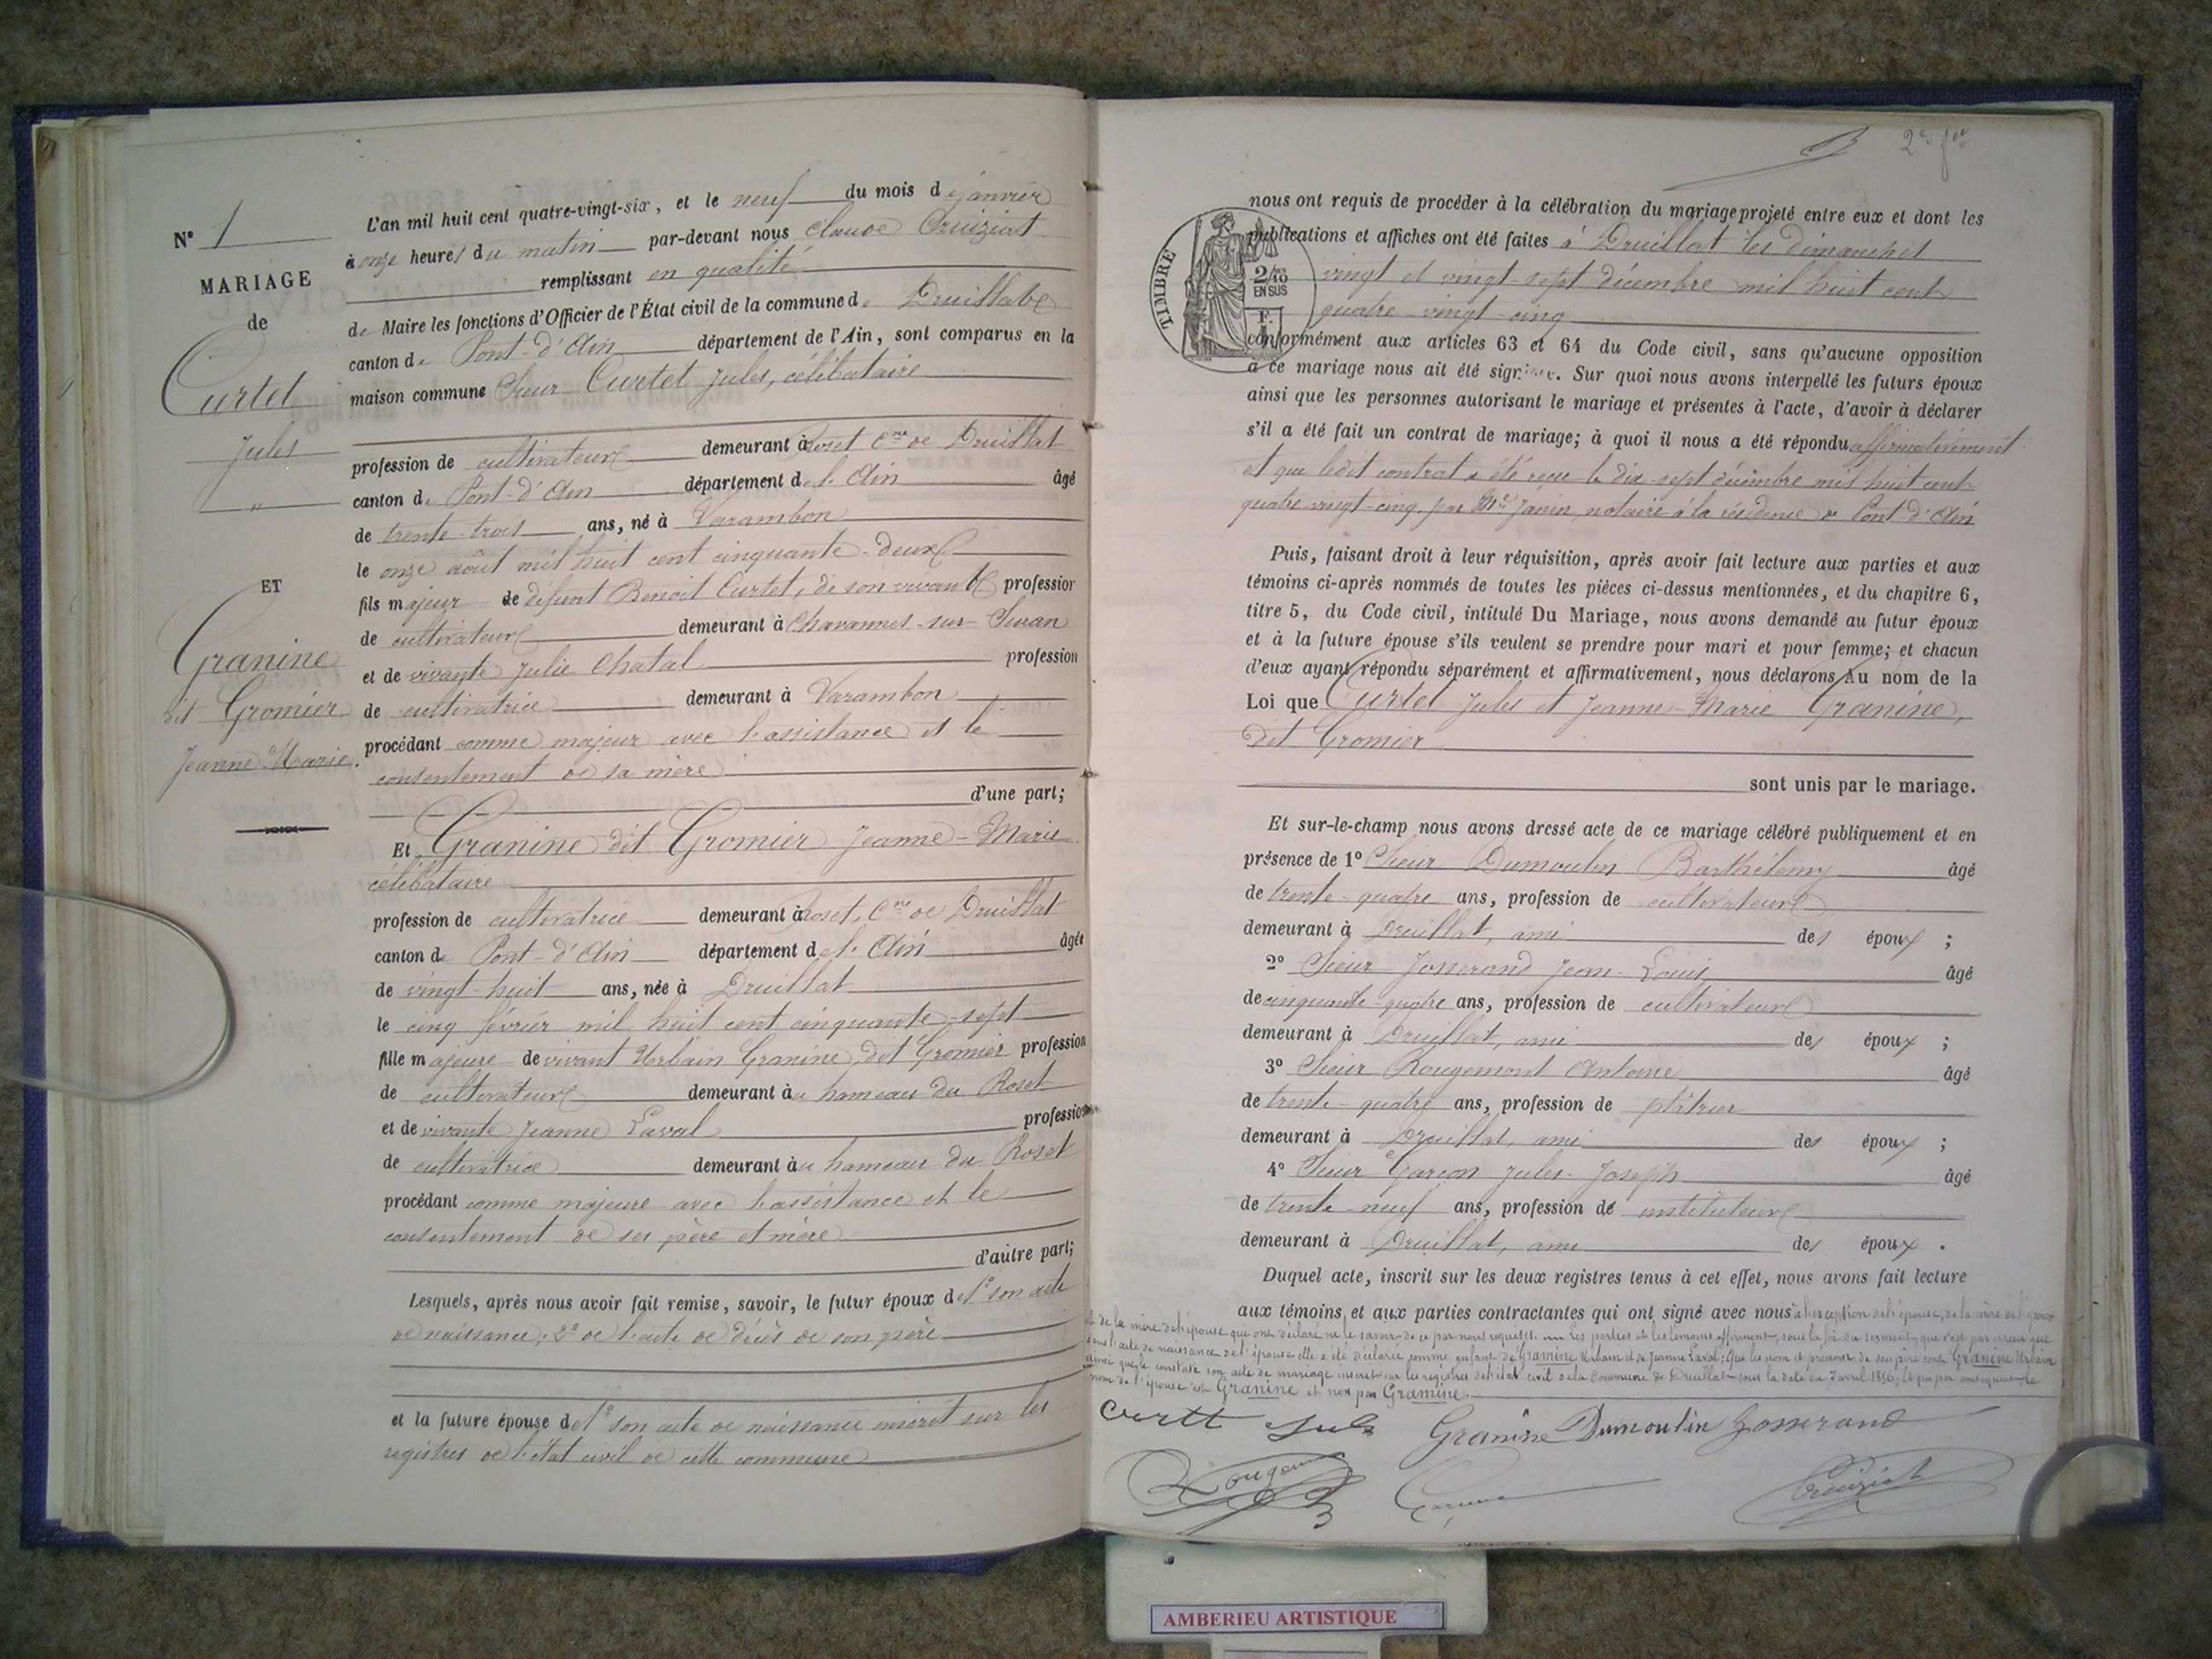 N° 1
MARIAGE
de
Curtet
Jules
"
ET
Granine
dit Gromier
Jeanne-Marie.
L'an mil huit cent quatre-vingt-six, et le neuf du mois de janvier
à onze heures du matin par-devant nous Claude Cruiziat
remplissant en qualité
de Maire les fonctions d'Officier de l'État civil de la commune de Druillat
canton de Pont-d'Ain département de l'Ain, sont comparus en la
maison commune Sieur Curtet Jules, célibataire
profession de cultivateur demeurant à Roset Cne de Druillat
canton de Pont-d'Ain département de l'Ain âgé
de trente-trois ans, né à Varambon
le onze août mil huit cent cinquante-deux
fils majeur de défunt Benoit Curtet, de son vivant profession
de cultivateur demeurant à Chavannes-sur-Suran
et de vivante Julie Chatal profession
de cultivatrice demeurant à Varambon
procédant comme majeur avec l'assistance et le
consentement de sa mère
d'une part;
Et Granine dit Gromier Jeanne-Marie
célibataire
profession de cultivatrice demeurant à Roset, Cne de Druillat
canton de Pont-d'Ain département de l'Ain âgée
de vingt-huit ans, née à Druillat
le cinq février mil huit cent cinquante-sept
fille majeure de vivant Urbain Granine, dit Gromier profession
de cultivateur demeurant au hameau du Roset
et de vivante Jeanne Laval profession
de cultivatrice demeurant au hameau du Roset
procédant comme majeure avec l'assistance et le
consentement de ses père et mère
d'autre part;
Lesquels, après nous avoir fait remise, savoir, le futur époux de 1° son acte
de naissance; 2° de l'acte de décès de son père
et la future épouse de 1° son acte de naissance inscrit sur les
registres de l'état civil de cette commune
2e
TIMBRE
2/10 EN SUS
nous ont requis de procéder à la célébration du mariage projeté entre eux et dont les
publications et affiches ont été faites à Druillat les dimanches
vingt et vingt-sept décembre mil huit cent
quatre-vingt-cinq
conformément aux articles 63 et 64 du Code civil, sans qu'aucune opposition
à ce mariage nous ait été signifiée. Sur quoi nous avons interpellé les futurs époux
ainsi que les personnes autorisant le mariage et présentes à l'acte, d'avoir à déclarer
s'il a été fait un contrat de mariage; à quoi il nous a été répondu affirmativement
et que ledit contrat a été reçu le dix-sept décembre mil huit cent
quatre-vingt-cinq par Me Janin, notaire à la résidence de Pont-d'Ain
Puis, faisant droit à leur réquisition, après avoir fait lecture aux parties et aux
témoins ci-après nommés de toutes les pièces ci-dessus mentionnées, et du chapitre 6,
titre 5, du Code civil, intitulé Du Mariage, nous avons demandé au futur époux
et à la future épouse s'ils veulent se prendre pour mari et pour femme; et chacun
d'eux ayant répondu séparément et affirmativement, nous déclarons Au nom de la
Loi que Curtet Jules et Jeanne-Marie Granine,
dit Gromier
sont unis par le mariage.
Et sur-le-champ nous avons dressé acte de ce mariage célébré publiquement et en
présence de 1° Sieur Dumoulin Barthélemy âgé
de trente-quatre ans, profession de cultivateur
demeurant à Druillat, ami des époux ;
2° Sieur Josserand Jean-Louis âgé
de cinquante-quatre ans, profession de cultivateur
demeurant à Druillat, ami des époux ;
3° Sieur Rougemont Antoine âgé
de trente-quatre ans, profession de plâtrier
demeurant à Druillat, ami des époux ;
4° Sieur Garçon Jules-Joseph âgé
de trente-neuf ans, profession de instituteur
demeurant à Druillat, ami des époux .
Duquel acte, inscrit sur les deux registres tenus à cet effet, nous avons fait lecture
aux témoins et aux parties contractantes qui ont signé avec nous à l'exception de l'épouse, de la mère de l'époux
et de la mère de l'épouse qui ont déclaré ne le savoir de ce par nous requises. Les parties et les témoins affirment, sous la foi du serment, que c'est par erreur que
dans l'acte de naissance de l'épouse elle a été déclarée comme enfant de Gramine Urbain et de Jeanne Laval; Que les nom et prénom de son père sont Granine Urbain
ainsi que le constate son acte de mariage inscrit sur les registres de l'état civil de la Commune de Druillat sous la date du 7 avril 1856; et que par conséquent le
nom de l'épouse est Granine et non pas Gramine.
Curtt Jules Granine Dumoulin Josserand
Rougemont Garçon Cruiziat
AMBERIEU ARTISTIQUE